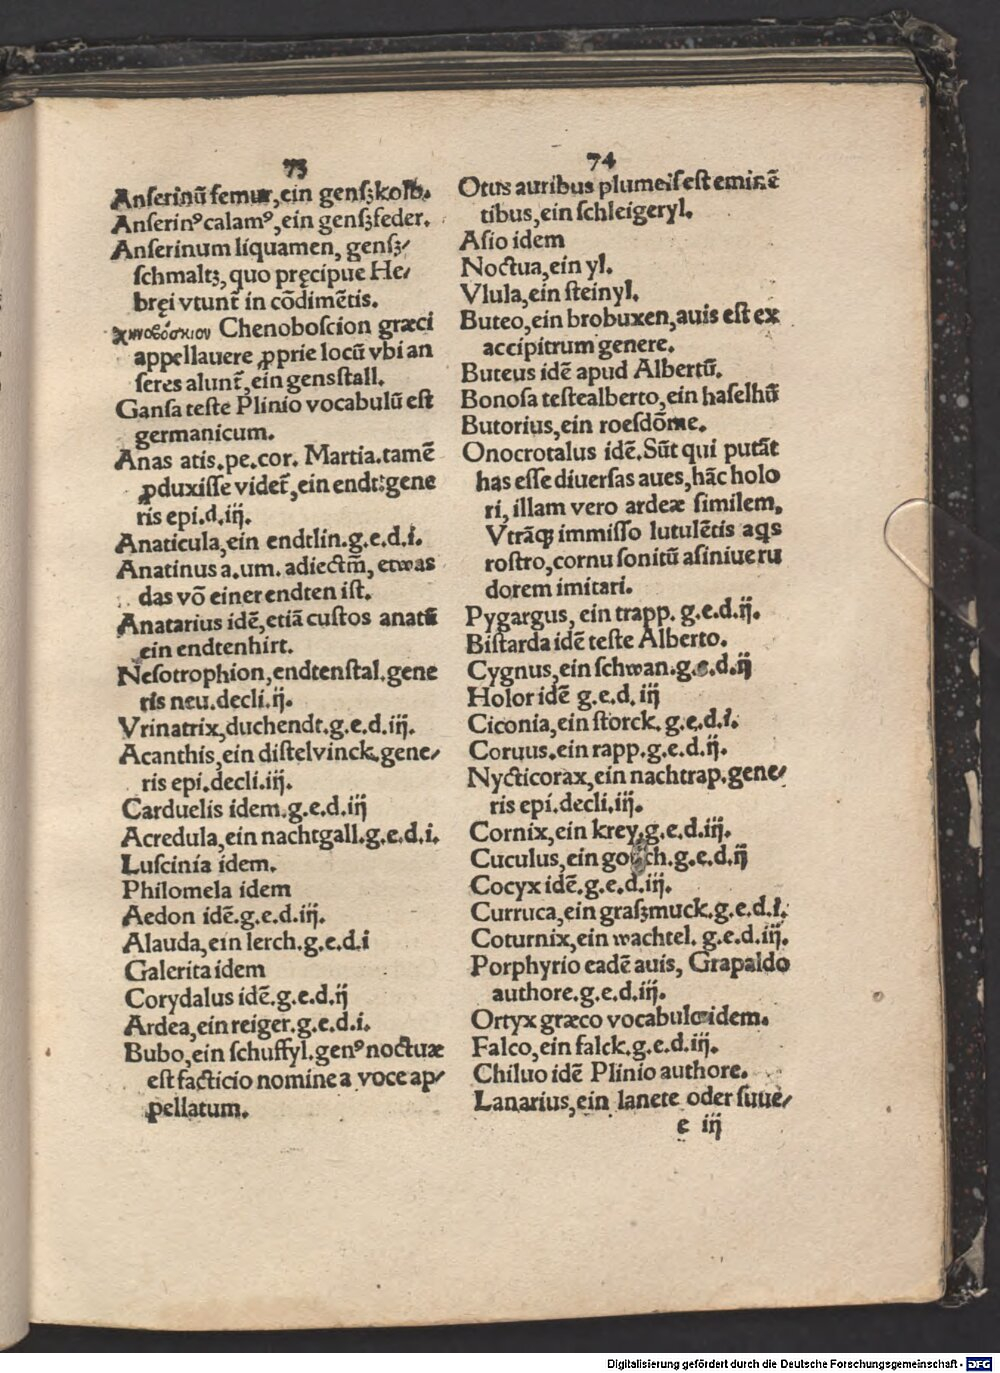 73
Anſerinū femur, ein genſzkolb.
Anſerinꝰ calamꝰ, ein genſzfeder.
Anſerinum liquamen, genſz⸗
ſchmaltz, quo pręcipue He⸗
bręi vtunt᷑ in cōdimētis.
χηνοβόσκιον Chenoboſcion græci
appellauere ꝓprie locū vbi an
ſeres alunt᷑, ein gensſtall.
Ganſa teſte Plinio vocabulū eſt
germanicum.
Anas atis.pe.cor. Martia.tamē
ꝓduxiſſe videt᷑, ein endt:gene
ris epi.d.iij.
Anaticula, ein endtlin.g.e.d.i.
Anatinus a.um. adiectm̄, etwas
das vō einer endten iſt.
Anatarius idē, etiā cuſtos anatū
ein endtenhirt.
Neſotrophion, endtenſtal.gene
ris neu.decli.ij.
Vrinatrix, duchendt.g.e.d.iij.
Acanthis, ein diſtelvinck.gene⸗
ris epi.decli.iij.
Carduelis idem.g.e.d.iij
Acredula, ein nachtgall.g.e.d.i.
Luſcinia idem.
Philomela idem
Aedon idē.g.e.d.iij.
Alauda, ein lerch.g.e.d.i
Galerita idem
Corydalus idē.g.e.d.ij
Ardea, ein reiger.g.e.d.i.
Bubo, ein ſchuffyl.genꝰ noctuæ
eſt facticio nomine a voce ap⸗
pellatum.
74
Otus auribus plumeis eſt eminē
tibus, ein ſchleigeryl.
Aſio idem
Noctua, ein yl.
Vlula, ein ſteinyl.
Buteo, ein brobuxen, auis eſt ex
accipitrum genere.
Buteus idē apud Albertū.
Bonoſa teſtealberto, ein haſelhū
Butorius, ein roeſdōme.
Onocrotalus idē. Sūt qui putāt
has eſſe diuerſas aues, hāc holo
ri, illam vero ardeæ ſimilem,
Vtrāqꝫ immiſſo lutulētis aq̄s
roſtro, cornu ſonitū aſiniue ru
dorem imitari.
Pygargus, ein trapp. g.e.d.ij.
Biſtarda idē teſte Alberto.
Cygnus, ein ſchwan.g.e.d.ij
Holor idē g.e.d.iij
Ciconia, ein ſtorck. g.e.d.i.
Coruus.ein rapp.g.e.d.ij.
Nycticorax, ein nachtrap.gene⸗
ris epi.decli.iij.
Cornix, ein krey.g.e.d.iij.
Cuculus, ein ch.g.e.d.ij
Cocyx idē.g.e.d.iij.
Curruca, ein graſzmuck.g.e.d.i.
Coturnix, ein wachtel. g.e.d.iij.
Porphyrio eadē auis, Grapaldo
authore.g.e.d.iij.
Ortyx græco vocabulo idem.
Falco, ein falck.g.e.d.iij.
Chiluo idē Plinio authore.
Lanarius, ein lanete oder ſuue⸗
e iij
Digitalisierung gefördert durch die Deutsche Forschungsgemeinschaft - DFG